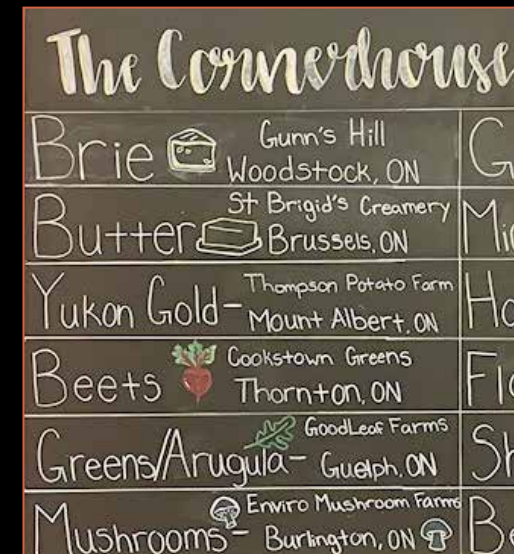 The Cornerhouse
Brie Gunn's Hill
Woodstock, ON
Butter St Brigid's Creamery
Brussels, ON
Yukon Gold- Thompson Potato Farm
Mount Albert, ON
Beets Cookstown Greens
Thornton, ON
Greens/Arugula- GoodLeaf Farms
Guelph, ON
Mushrooms- Enviro Mushroom Farms
Burlington, ON